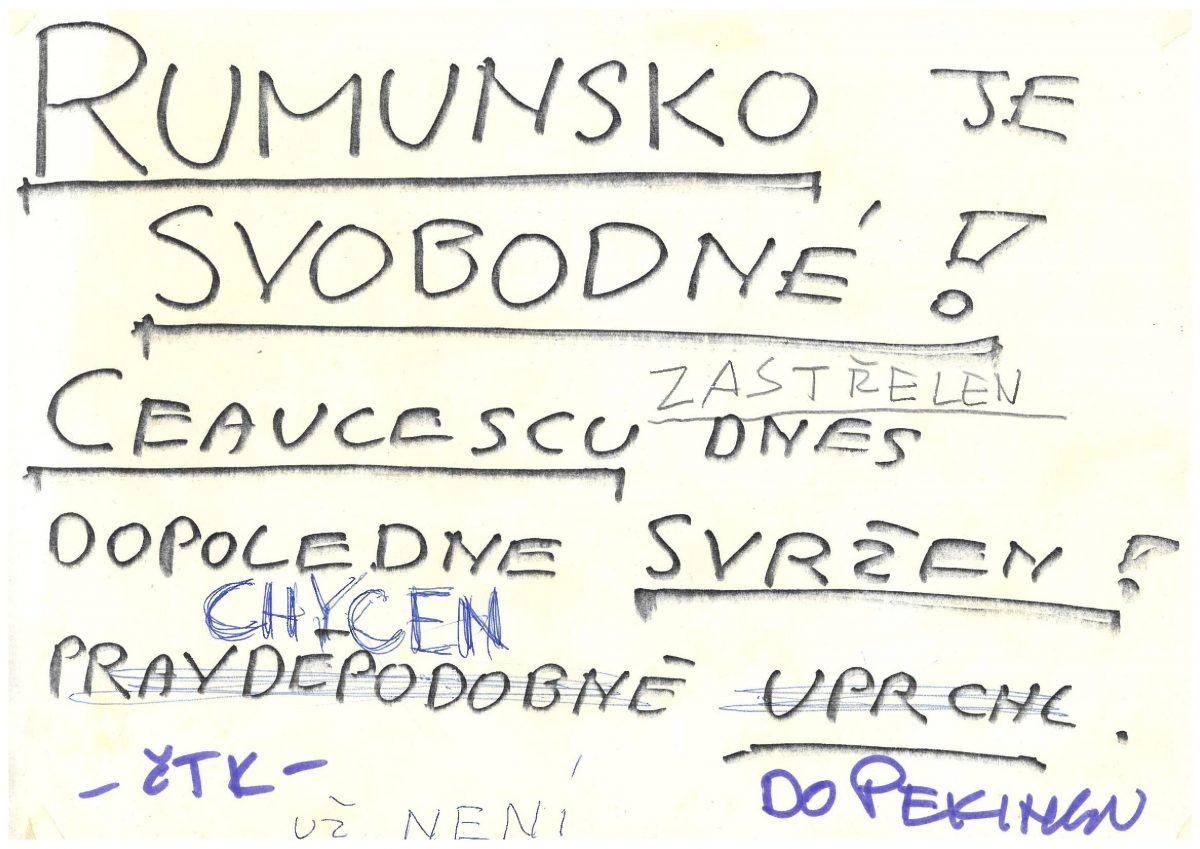 RUMUNSKO JE
SVOBODNÉ!
ZASTŘELEN
CEAUCESCU DNES
DOPOLEDNE SVRŽEN!
CHYCEN
PRAVDĚPODOBNĚ UPRCHL.
- ČTK - DO PEKINGU
UŽ NENÍ